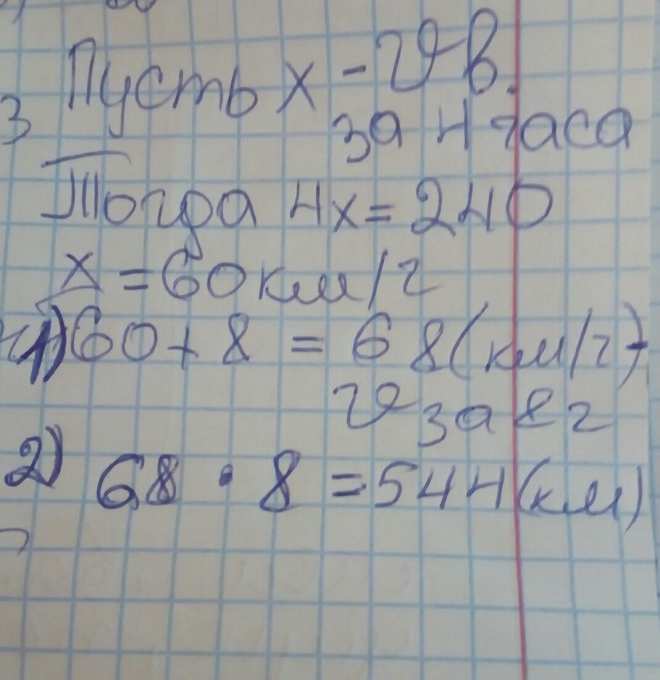 Пусть x - v в.
за 4 часа
Тогда 4x = 240
x = 60 км/ч
1) 60 + 8 = 68 (км/ч) -
v за 8 ч
2) 68 · 8 = 544 (км)